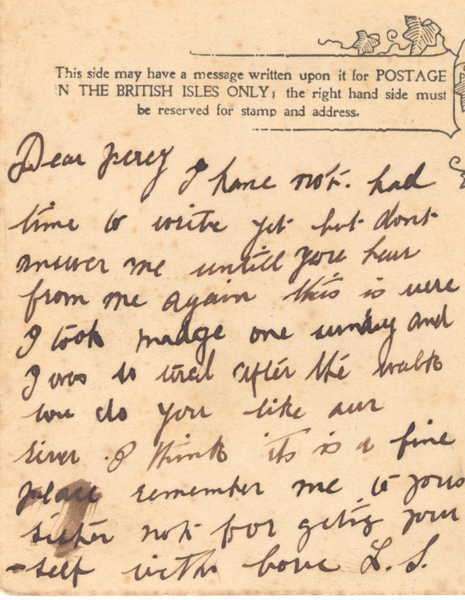 This side may have a message written upon it for POSTAGE
IN THE BRITISH ISLES ONLY; the right hand side must
be reserved for stamp and address.
Dear Percy I have not had
time to write yet but dont
answer me untill you hear
from me again this is were
I took madge one sunday and
I was so tired after the walk
how do you like our
river I think its is a fine
place remember me to your
sister not for geting your
-self with love L. S.